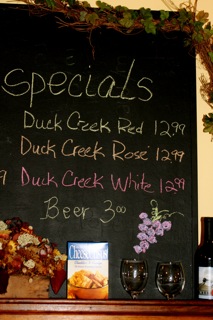 Specials
Duck Creek Red 12.99
Duck Creek Rosé 12.99
9 Duck Creek White 12.99
Beer 3.00